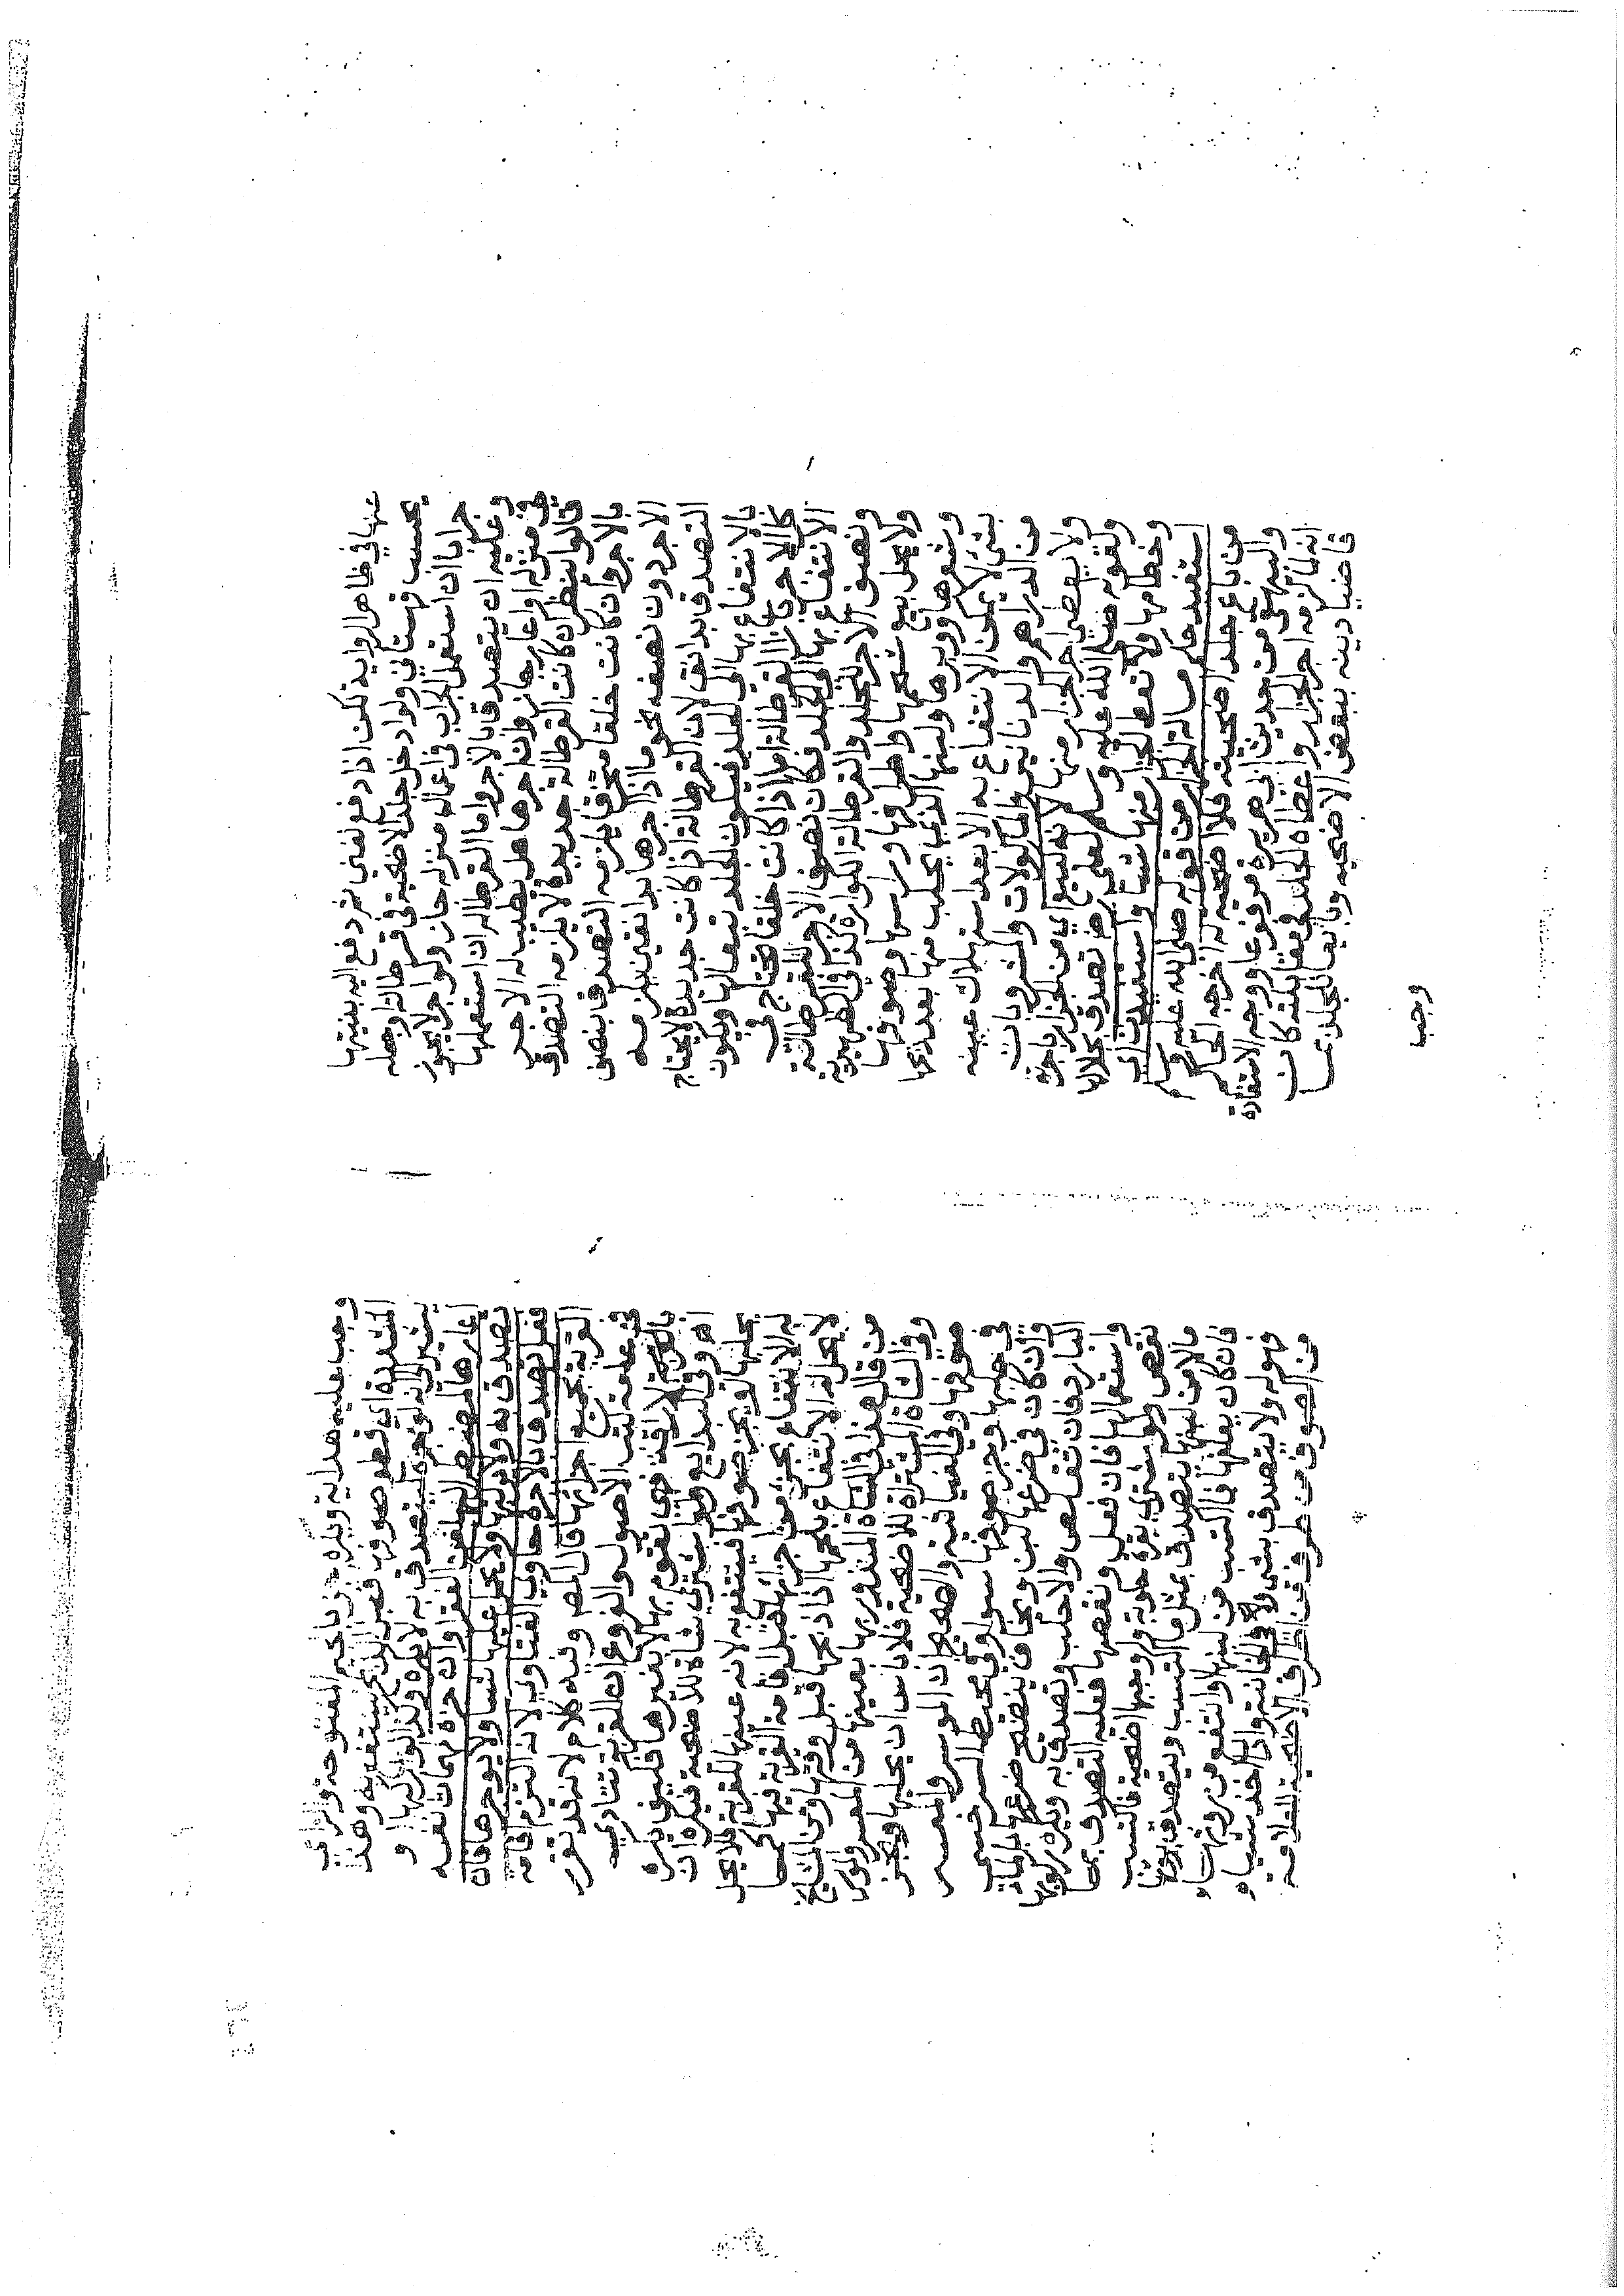 عنها في ظاهر الرواية لكن اذا دفع لغني ثم دفع اليه بنيتها
يحسب قهستاني ولو ادخل جلد الاضحية في قرطالة او جعله
جرابا ان استعمل الجراب في اعمال منزله جاز ولو اجر لا يجوز
وعليه ان يتصدق بالاجر واما القرطالة ان استعملها
في منزله او اعارها جاز وان اجرها هل يطيب له الاجر
قالوا ينظر ان كانت القرطالة جديدة لا يلزمه التصدق
بالاجر وان كانت خلقا متخرقا يلزمه التصدق بنصف
الاجر دون نصفه نحو ما اذا اجرها بدانقين يلزمه
التصدق بدانق لان القرطالة اذا كانت جديدة لا يحتاج
بالانتفاع بها الى الجلد فيكون الجلد تبعا لها ويكون
كل الاجر بازا القرطالة اما اذا كانت خلقا تحتاج في
الانتفاع بها الى الجلد فكان نصف الاجر للقرطالة
ونصف الاجر للجلد والقرطالة الكوارة كذا في الظهيرية
ولا يحل بيع شحمها واطرافها وراسها وصوفها
وشعرها ووبرها ولبنها الذي يحلب منها بعد ذبحها
بشئ لا يمكن الانتفاع به الا بعد استهلاك عينه
من الدراهم والدنانير والماكولات والمشروبات
ولا يعطي اجر الجزار منها لانه كبيع اي من الجزار باجرة
ولقوله صلى الله عليه وسلم لعلي رضي تصدق بجلالها
وخطامها ولا تعط الجزار منها شيا واستفيدت اي
استفيد حكم مسالة الجزار من قوله صلى الله عليه وسلم
من باع جلد اضحيته فلا اضحية له اخرجه الحاكم
والبيهقي من حديث ابي هريرة مرفوعا ووجه الاستفادة
انه لما لزمه اجر الجزار واعطاه الجلد في مقابلته كان
قاضيا دينه ببعض الاضحية وبايعا للجلد بما
وجب
وجب عليه هداية ويكره بزناخير المفتوحة والراي
المشددة اي قطع صوفها قبل الذبح لينتفع به وهذا
يشير الى انه لو جزه ليتصدق به لا يكره وكذا لو ركبها او
اعارها للضيف للحلب الفقراوان جزه لمهمات نفسه
تصدق به ولا يركبها ولا يحمل عليها شيا ولا يوجرها فان
فعل تصدق بالاجرة حاوي الفتاوي لانه التزم اقامة
القربة بجميع اجزائها قال المص وفيه كلام لانه قد تقرر
في علمه كتب الاصول والفروع ان القربة تتادي
بالاراقة فهي تقوم بها لا بغيرها فكيف يكره
اه وفي البدايع ولو اشترى شاة للاضحية فيكره ان
يحلبها او يجز صوفها فينتفع به لانه عينها للقربة فلا يحل
له الانتفاع بجزء من اجزائها قبل اقامة القربة فيها كما
لا يحل له الانتفاع بلحمها اذا ذبحها قبل وقتها ومن المشايخ
من قال هذا في الشاة المنذور بها بعينها من المعسر والموسر
وفي الشاة المشتراة للاضحية فلا باس ان يحلبها ويجز
صوفها وفي الغياثية والصحيح ان الموسر والمعسر
في حلبها وجز صوفها سوا وفي محيط السرخسي
وان كان في ضرعها لبن ويخاف ينضح ضرعها بالماء
البارد فان تقلص والا حلب وتصدق به ويكره ركوبها
واستعمالها فان فعل ونقصها فعليه التصدق بما
نقص ولو اشترى بقرة حلوبة واوجبها اضحية فاكتسب
مالا من لبنها يتصدق بمثل ما اكتسب ويتصدق بروثها
فان كان يعلفها فما اكتسب من لبنها وانتفع من روثها
فهو له ولا يتصدق بشئ وفي الخانية وان اخذ شيا
من الصوف من طرف من اطراف الاضحية للعلامة